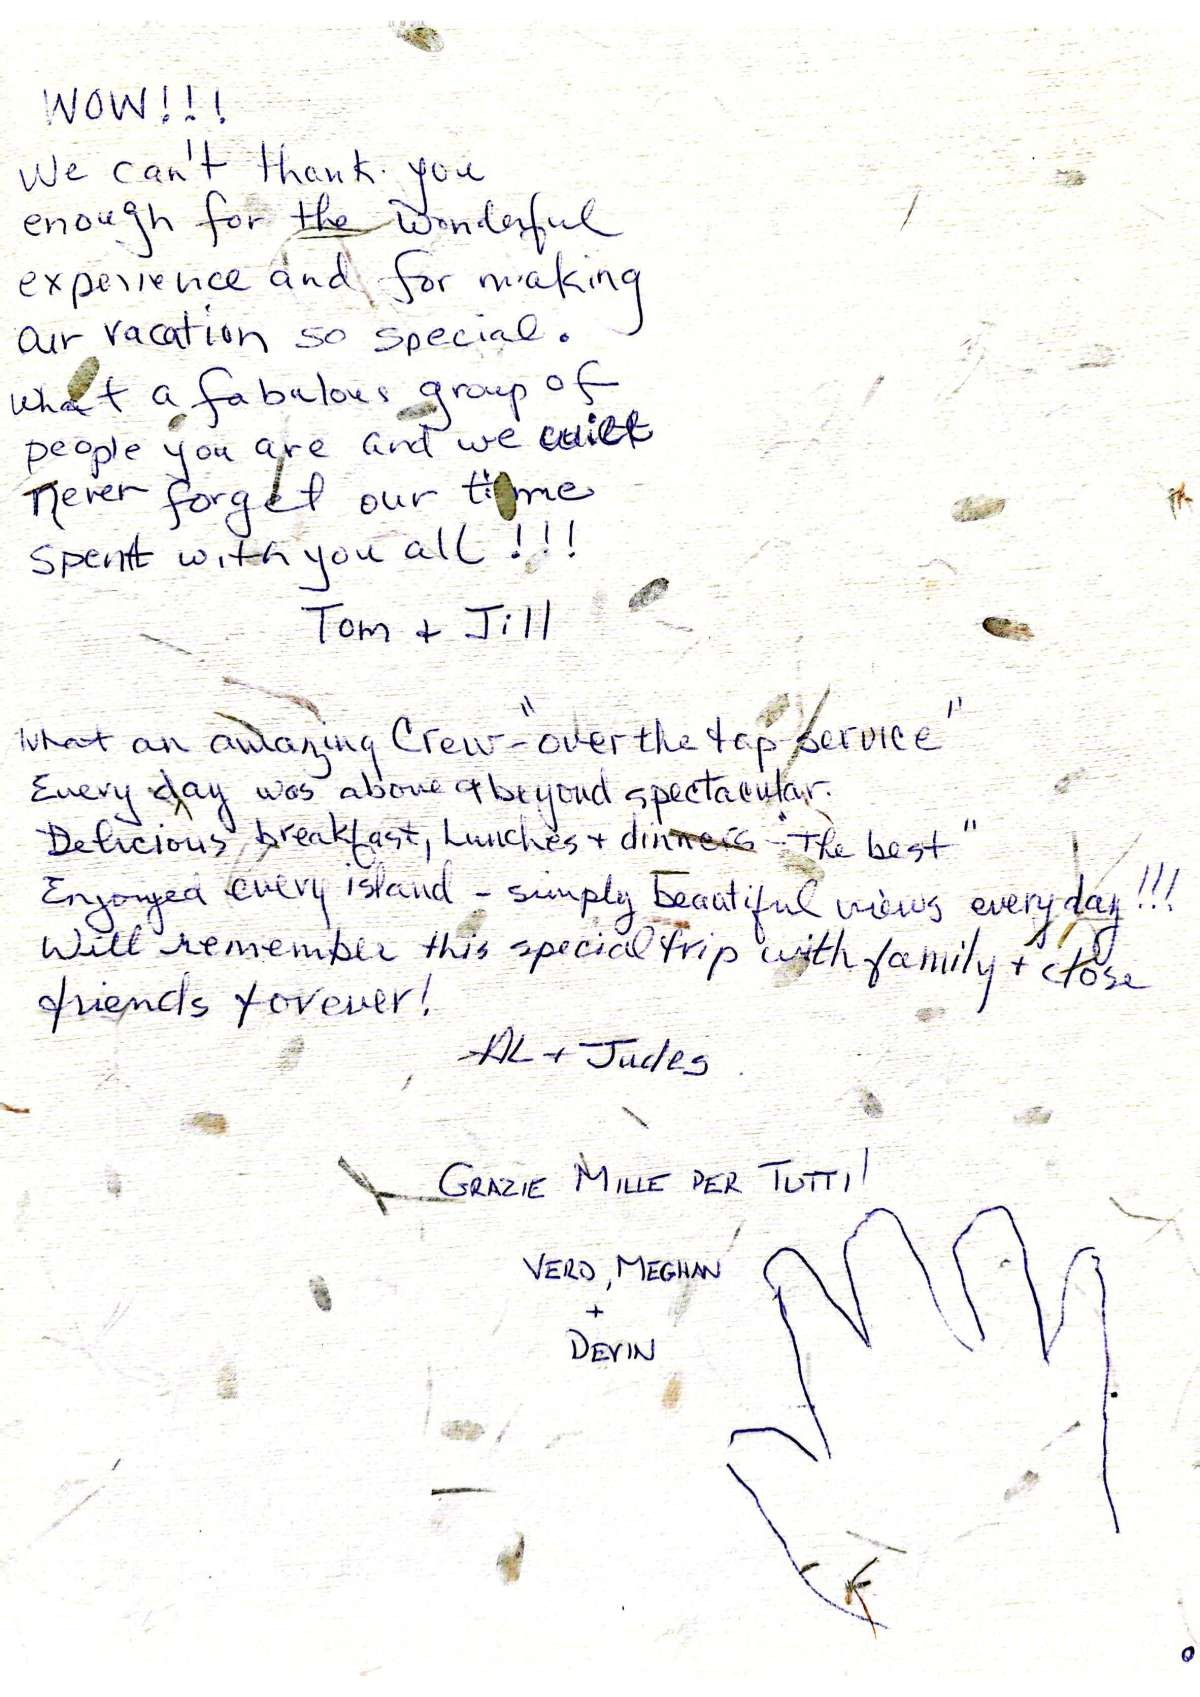 WOW!!!
We can't thank you
enough for the wonderful
experience and for making
our vacation so special.
What a fabulous group of
people you are and we will
never forget our time
spent with you all!!!
Tom + Jill
What an amazing Crew - "over the top service"
Every day was above & beyond spectacular.
Delicious breakfast, lunches + dinners - "The best"
Enjoyed every island - simply beautiful views everyday!!!
Will remember this special trip with family + close
friends forever!
AL + Judes
GRAZIE MILLE PER TUTTI!
VERO, MEGHAN
+
DEVIN